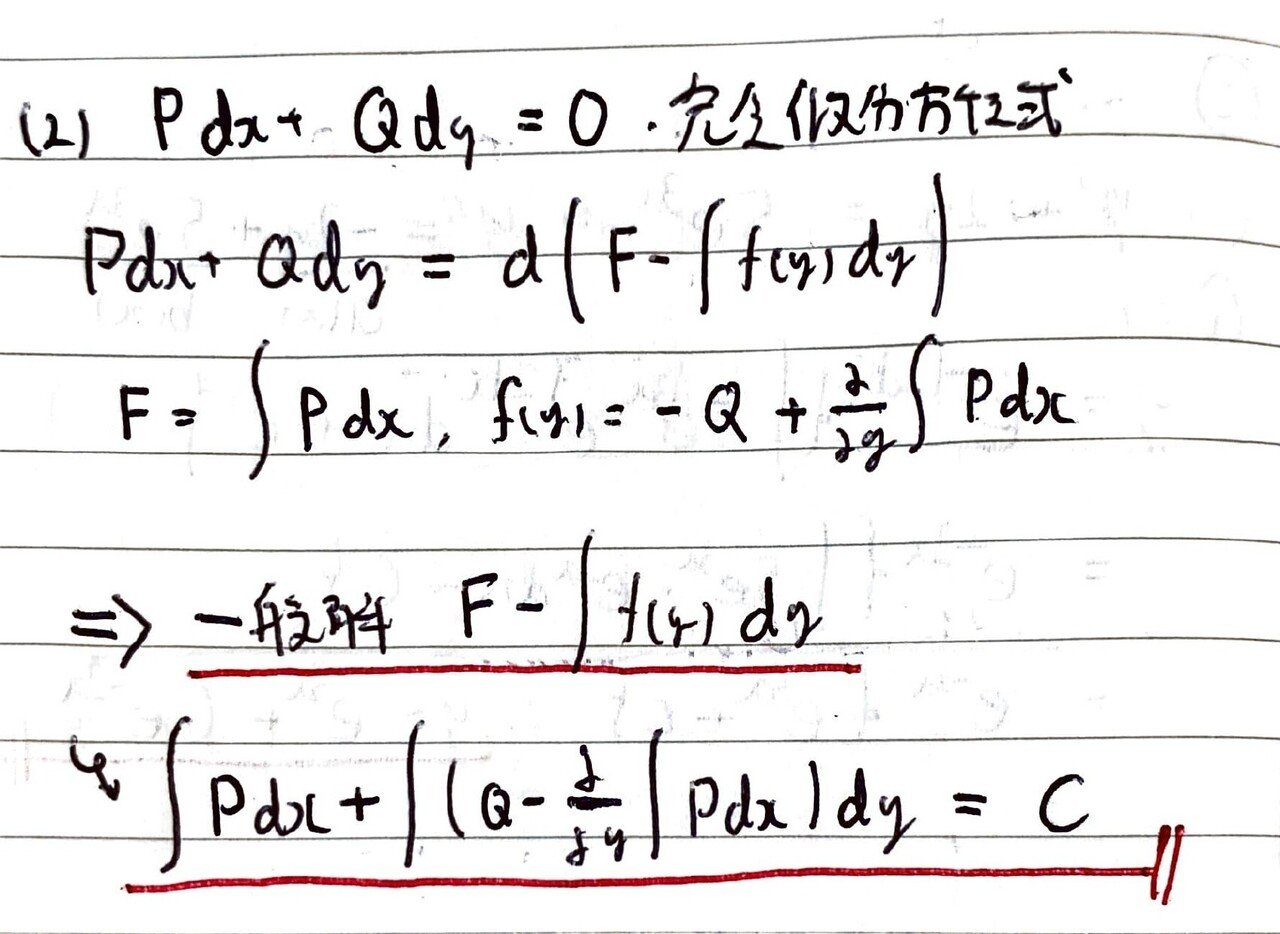 (2) Pdx + Qdy = 0 . 完全微分方程式
Pdx + Qdy = d(F - ∫f(y)dy)
F = ∫Pdx, f(y) = -Q + ∂/∂y ∫Pdx
=> 一般解 F - ∫f(y)dy
↳ ∫Pdx + ∫(Q - ∂/∂y ∫Pdx)dy = C